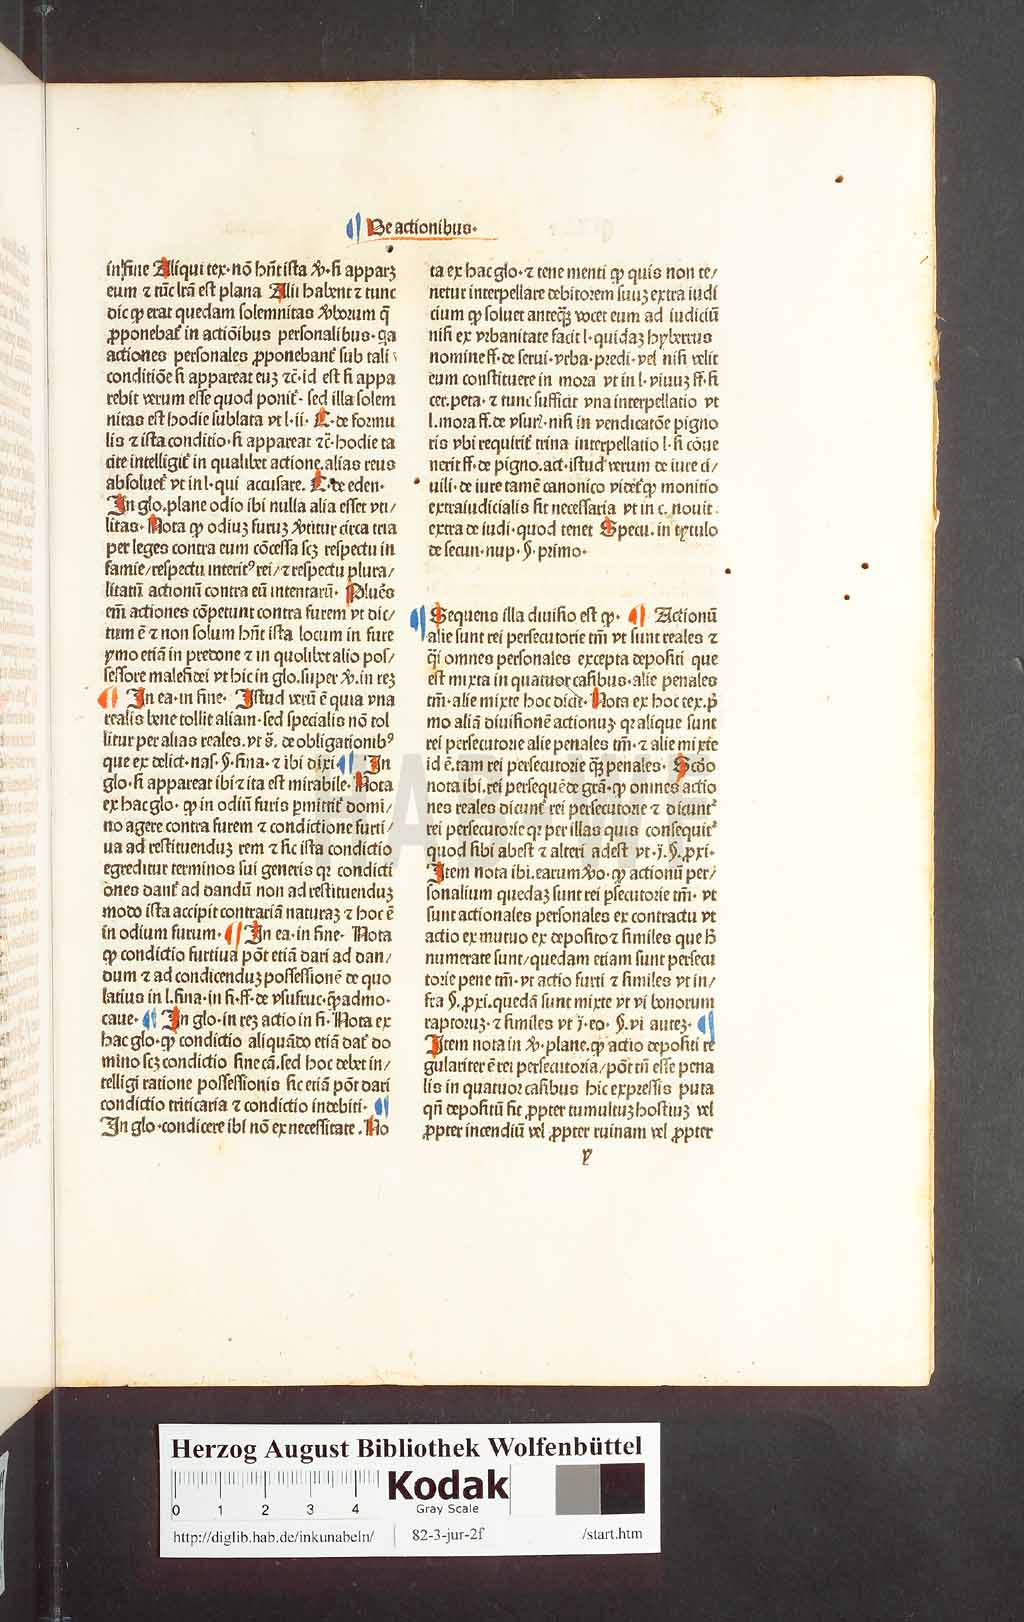 De actionibus·
in fine Aliqui tex· nō hn̄t ista ꝟ·si apparꝫ
eum ⁊ tūc lr̄a est plana Alii habent ⁊ tunc
dic ꝙ erat quedam solemnitas ꝟborum q̄
ꝓponebat̄ in actiōibus personalibus· qa
actiones personales ꝓponebant̄ sub tali
conditiōe si appareat euꝫ ⁊c̄· id est si appa
rebit verum esse quod ponit̄· sed illa solem
nitas est hodie sublata vt l·ii· C· de formu
lis ⁊ ista conditio· si appareat ⁊c̄· hodie ta
cite intelligit̄ in qualibet actione. alias reus
absoluet̄ vt in l· qui accusare. C· de eden·
In glo.plane odio ibi nulla alia esset vti/
litas· Nota ꝙ odiuꝫ furuꝫ ꝟtitur circa tria
per leges contra eum cōcessa scꝫ respectu in
famie/respectu interitꝰ rei/⁊ respectu plura/
litatū actionū contra eū intentarū· Plures
em̄ actiones cōpetunt contra furem vt dic/
tum ē ⁊ non solum hn̄t ista locum in fure
ymo etiā in predone ⁊ in quolibet alio pos/
sessore malefidei vt hic in glo.super ꝟ.in reꝫ
¶ In ea·in fine· Istud verū ē quia vna
realis bene tollit aliam·sed specialis nō tol
litur per alias reales.vt s̄. de obligationibꝰ
que ex delict·nas·§·fina·⁊ ibi dixi ¶ In
glo·si appareat ibi ⁊ ita est mirabile· Nota
ex hac glo· ꝙ in odiū furis ꝑmittit̄ domi/
no agere contra furem ⁊ condictione furti/
ua ad restituenduꝫ rem ⁊ sic ista condictio
egreditur terminos sui generis qꝛ condicti
ōnes dant̄ ad dandū non ad restituenduꝫ
modo ista accipit contrariā naturaꝫ ⁊ hoc ē
in odium furum· ¶ In ea·in fine· Nota
ꝙ condictio furtiua pōt etiā dari ad dan/
dum ⁊ ad condicenduꝫ possessionē de quo
latius in l.fina·in fi·ff·de vsufruc·q̄admo·
caue· ¶ In glo·in reꝫ actio in fi· Nota ex
hac glo·ꝙ condictio aliquādo etiā dat̄ do
mino scꝫ condictio sine cā.sed hoc debet in/
telligi ratione possessionis sic etiā pōt dari
condictio triticaria ⁊ condictio indebiti· ¶
In glo·condicere ibi nō ex necessitate. No
ta ex hac glo·⁊ tene menti ꝙ quis non te/
netur interpellare debitorem suuꝫ extra iudi
cium ꝙ soluet anteq̄ꝫ vocet eum ad iudiciū
nisi ex vrbanitate facit l·quidaꝫ hyberus
nomine ff·de serui·vrba·predi·vel nisi velit
eum constituere in mora vt in l·viuuꝫ ff·si
cer.peta·⁊ tunc sufficit vna interpellatio vt
l.mora ff·de vsur̄·nisi in vendicatōe pigno
ris vbi requirit̄ trina interpellatio l·si cōue
nerit ff·de pigno.act·istud verum de iure ci/
uili·de iure tamē canonico videt̄ ꝙ monitio
extraiudicialis sit necessaria vt in c·nouit·
extra de iudi·quod tenet Specu.in tytulo
de secun·nup·§·primo·
¶ Sequens illa diuisio est ꝙ· ¶ Actionū
alie sunt rei persecutorie tm̄ vt sunt reales ⁊
q̄si omnes personales excepta depositi que
est mixta in quatuor casibus·alie penales
tm̄·alie mixte hoc dicit· Nota ex hoc tex.p̄
mo aliā diuisionē actionuꝫ qꝛ alique sunt
rei persecutorie alie penales tm̄·⁊ alie mixte
id ē.tam rei persecutorie q̄ꝫ penales· Scd̄o
nota ibi.rei persequēde grā·ꝙ omnes actio
nes reales dicunt̄ rei persecutorie ⁊ dicunt̄
rei persecutorie qꝛ per illas quis consequit̄
quod sibi abest ⁊ alteri adest vt·j̄·§·ꝓxi·
Item nota ibi.earum ꝟo·ꝙ actionū per/
sonalium quedaꝫ sunt rei ꝑsecutorie tm̄· vt
sunt actionales personales ex contractu vt
actio ex mutuo ex deposito ⁊ similes que h̄
numerate sunt/quedam etiam sunt persecu
torie pene tm̄·vt actio furti ⁊ similes vt in/
fra §·ꝓxi.quedā sunt mixte vt vi bonorum
raptoruꝫ·⁊ similes vt j̄·eo· §·vi auteꝫ· ¶
Item nota in ꝟ·plane.ꝙ actio depositi re
gulariter ē rei persecutoria/pōt tn̄ esse pena
lis in quatuor casibus hic expressis puta
qn̄ depositū fit ꝓpter tumultuꝫ hostiuꝫ vel
ꝓpter incendiū vel ꝓpter ruinam vel ꝓpter
y
HAB WF
Herzog August Bibliothek Wolfenbüttel
0 1 2 3 4
Kodak
Gray Scale
http://diglib.hab.de/inkunabeln/ 82-3-jur-2f /start.htm